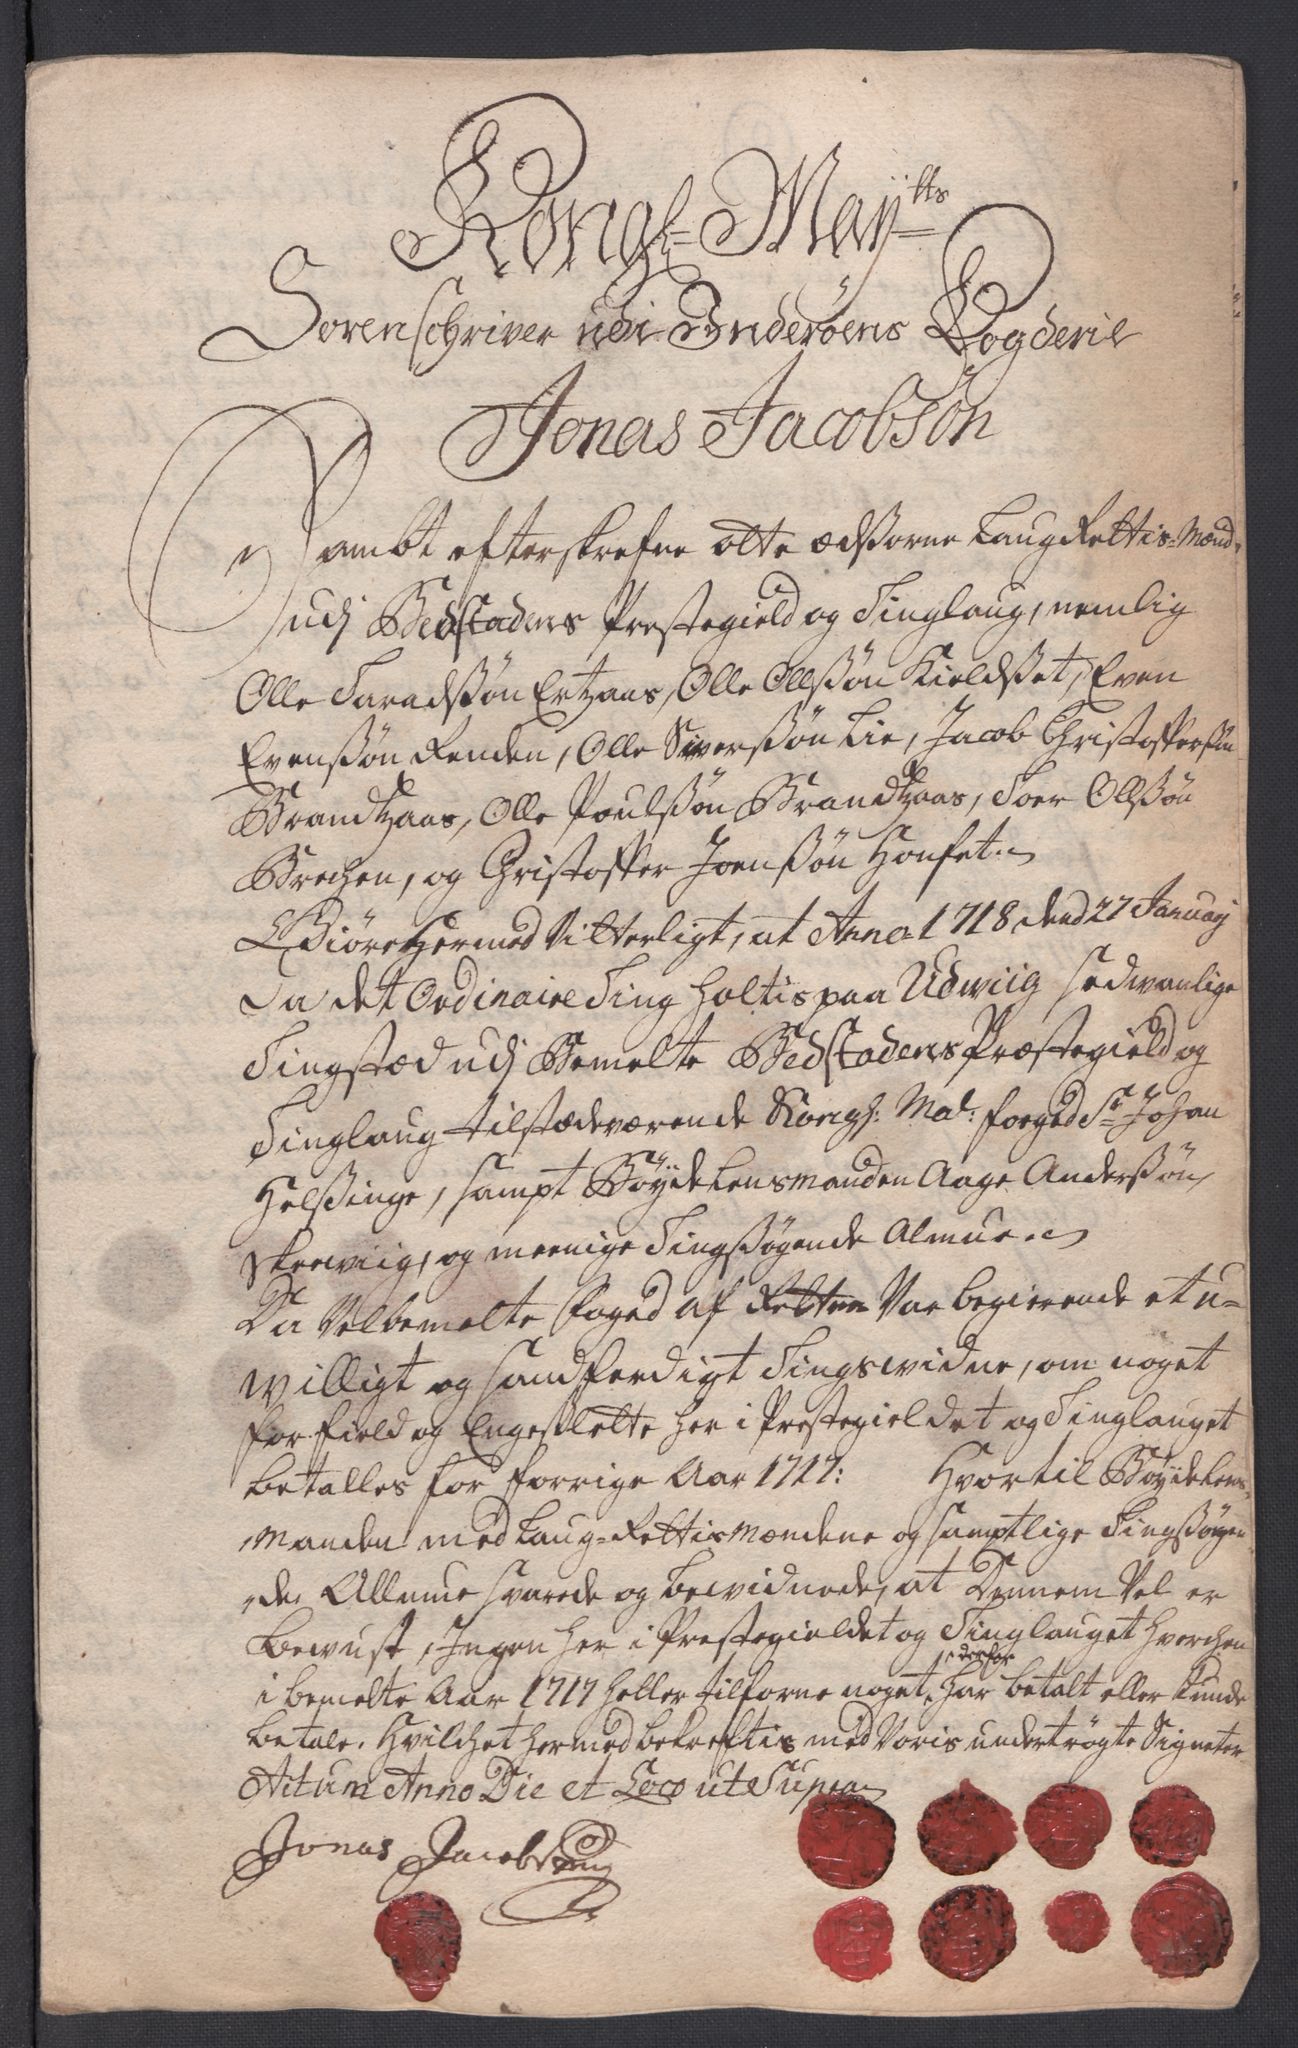 Kongl= May=tts
Sorenschriver udi Inderöens Fogderie
Jonas Jacobsön
Sambt efterskrefne otte ædsorne Laug Rettis=Mænd
udj Bedstadens Prestegield og Tinglaug, nemlig
Olle Taradssön Ertzaas, Olle Ollssön Kieldsset, Even
Evenssön Renden, Olle Siverssön Lie, Jacob Christoffersön
Brandtzaas, Olle Poulssön Brandtzaas, Toer Ollssön
Brechen, og Christoffer Joenssön Honset.
Giöre Hermed Vitterligt, at Anno 1718 dend 27 Januarj
Da det Ordinaire Ting holtis paa Udwiig sedvanlige
Tingstæd udj Bemelte Bedstadens Præstegield og
Tinglaug tilstædeværende Kongl: Maÿ: foeged Sr Johan
Helssinge, sampt Böyde Lensmanden Aage Anderssön
Skeewiig, og meenige Tingssögende Almue.
Da Velbemelte Foged af Retten Var begierende et u=
willigt og sandferdigt Tingswidne, om noget
for field og Engesletteher i Prestegieldet og Tinglauget
betalles for forrige Aar 1717: Hvortil Böyde Lens=
manden med Laug=Rettismændene og samptlige Tingssögen
de Allmue svarede og bewidnede, at Dennem Vel er
bewust, Ingen her i Prestegieldet og Tinglauget hverchen
i bemelte Aar 1717 heller tilforne noget derfor har betalt eller kunde
betale. Hvilchet hermed bekreftis med Voris undertrögte Signeter
Actum Anno Die et Loco ut Supra
Jonas Jacobsen